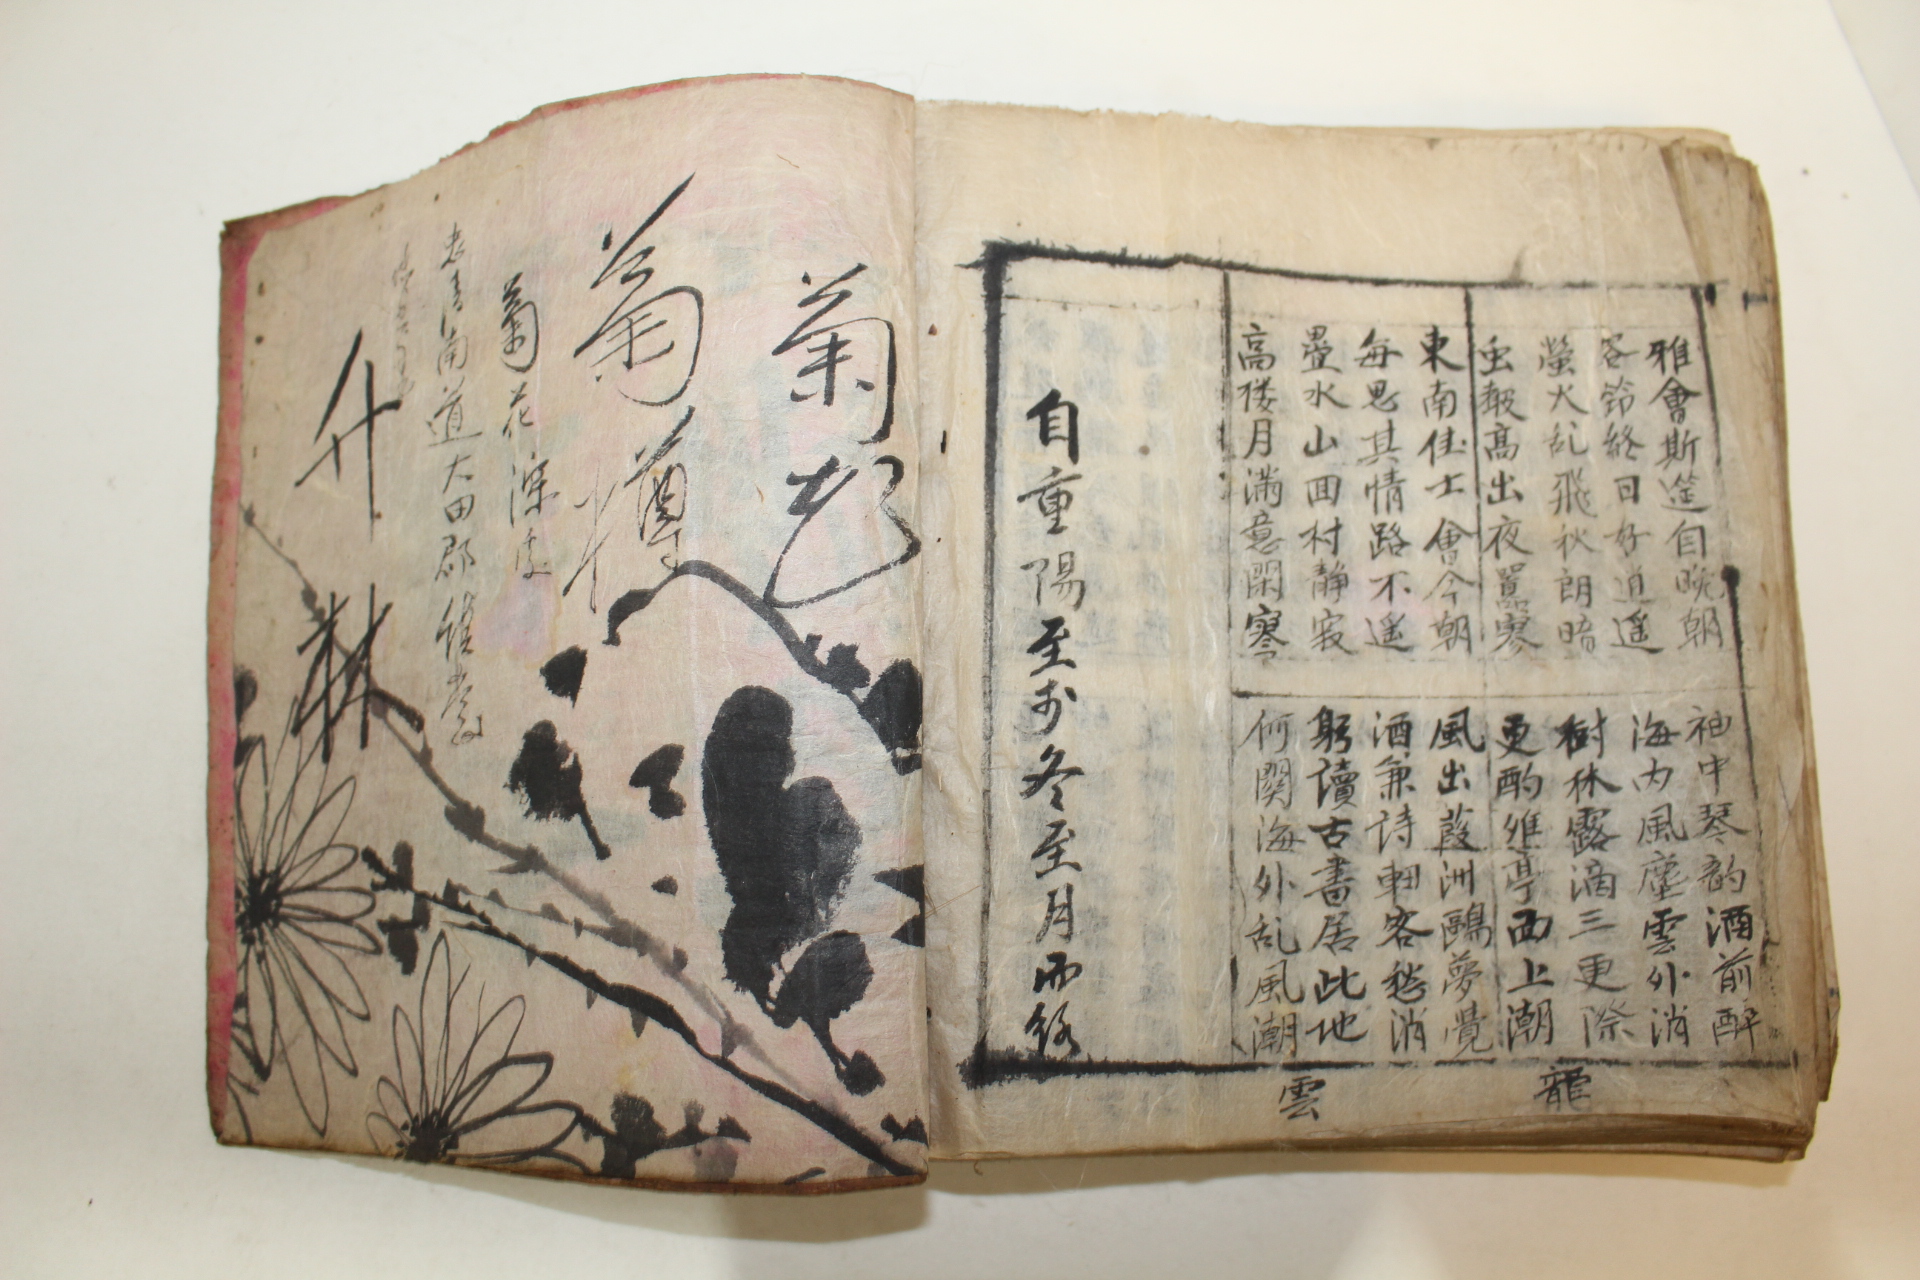 雅會斯筵自晩朝
袖中琴韵酒前醉
客鈴終日好逍遥
海内風塵雲外消
螢火乱飛秋朗暗
樹林露滴三更際
虫報高出夜囂寥
更酌維亭西上潮
龍
東南佳士會今朝
風出葭洲鷗夢覺
每思其情路不遥
酒兼詩軸客愁消
疊水山回村静寂
躬讀古書居此地
高楼月满意閑寥
何関海外乱風潮
雲
自重陽至於冬至月而終
菊
菊樽
菊花深處
忠淸南道大田郡
升
林